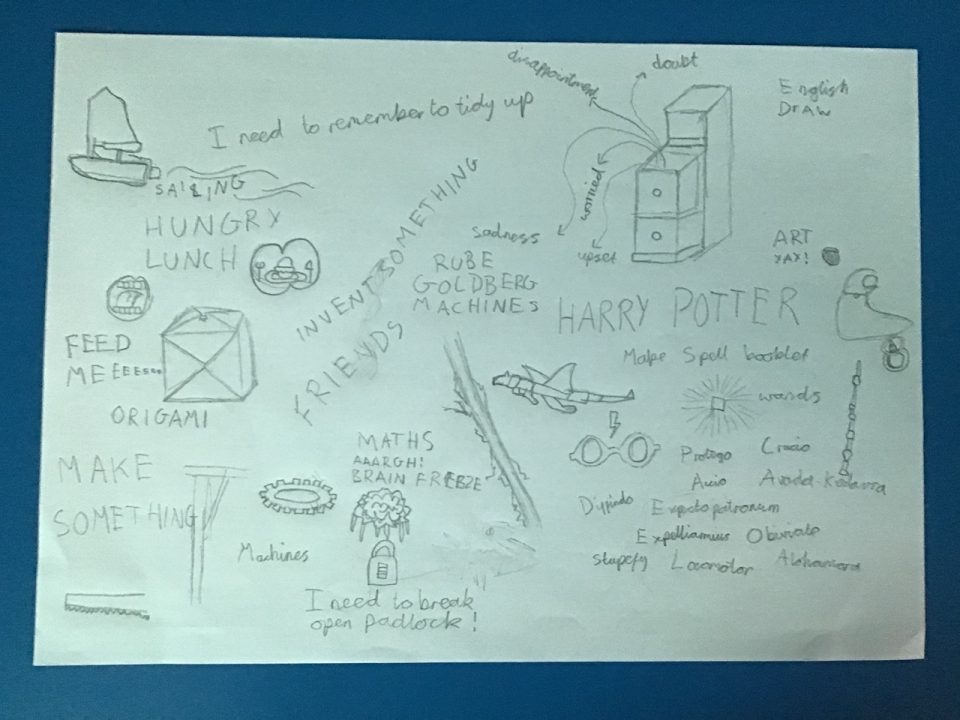 disappointment
doubt
English
DRAW
I need to remember to tidy up
SAILING
worried
HUNGRY
LUNCH
INVENT SOMETHING
sadness
upset
ART
YAY!
RUBE
GOLDBERG
MACHINES
HARRY POTTER
FRIENDS
FEED
MEEEEE...
Make Spell booklet
wands
ORIGAMI
MATHS
AAARGH!
BRAIN FREEZE
Protego
Crucio
Accio
Avada Kedavra
MAKE
SOMETHING
Expectopatronum
Expelliarmus
Machines
Stupefy
Locomotor
Alohamora
I need to break
open padlock!